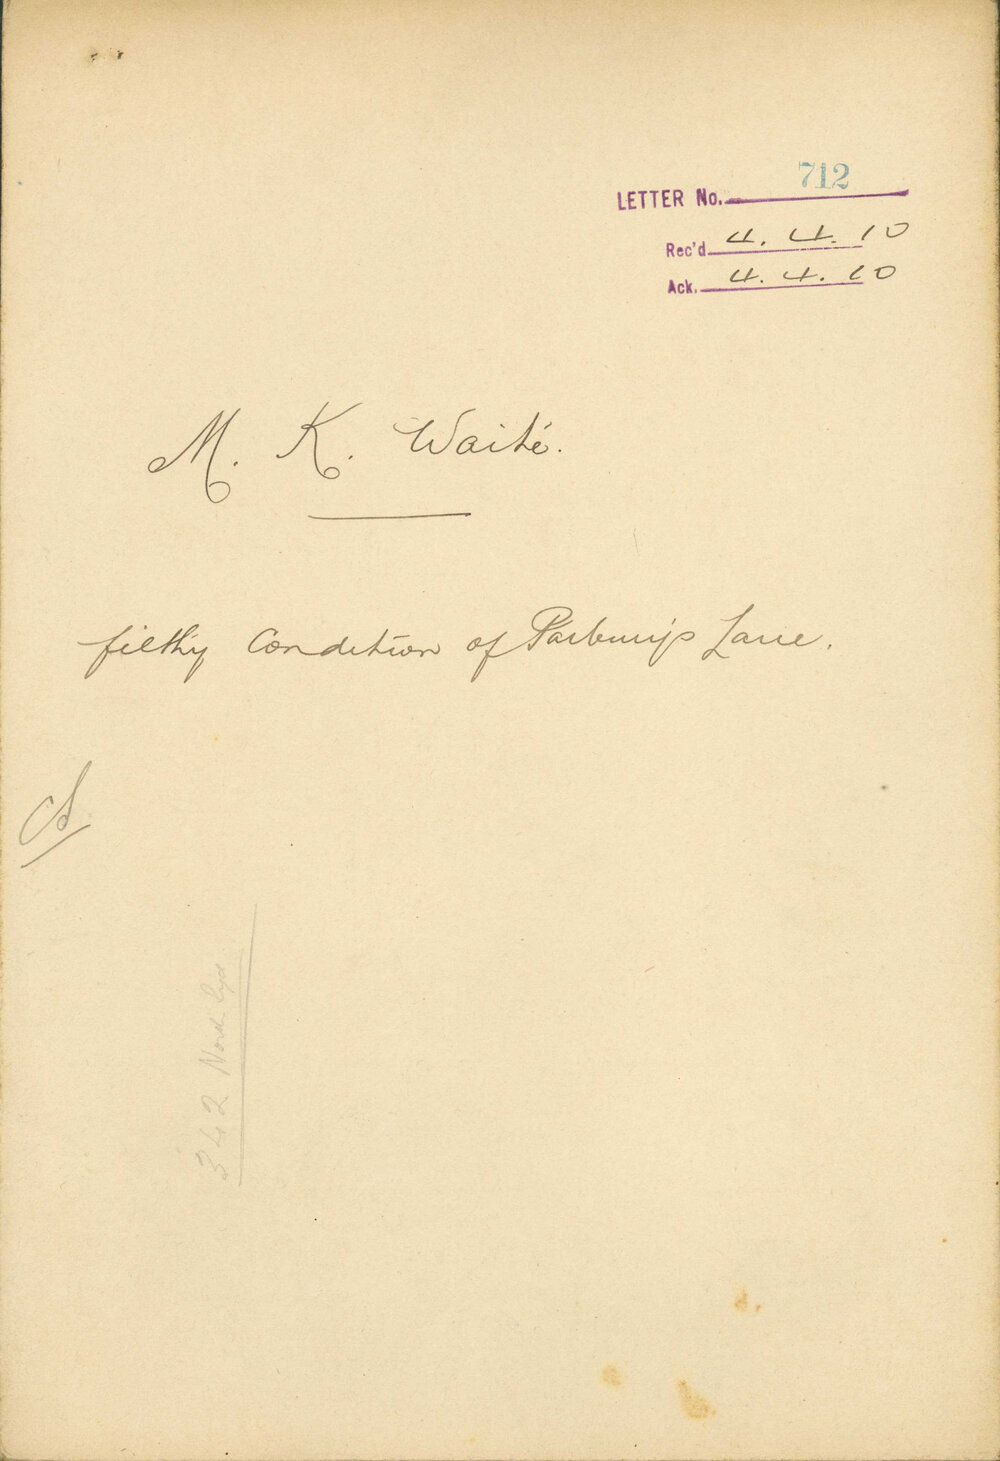 LETTER No. 712
Rec'd 4. 4. 10
Ack. 4. 4. 10
M. K. Waite.
filthy Condition of Parbury's Lane.
342